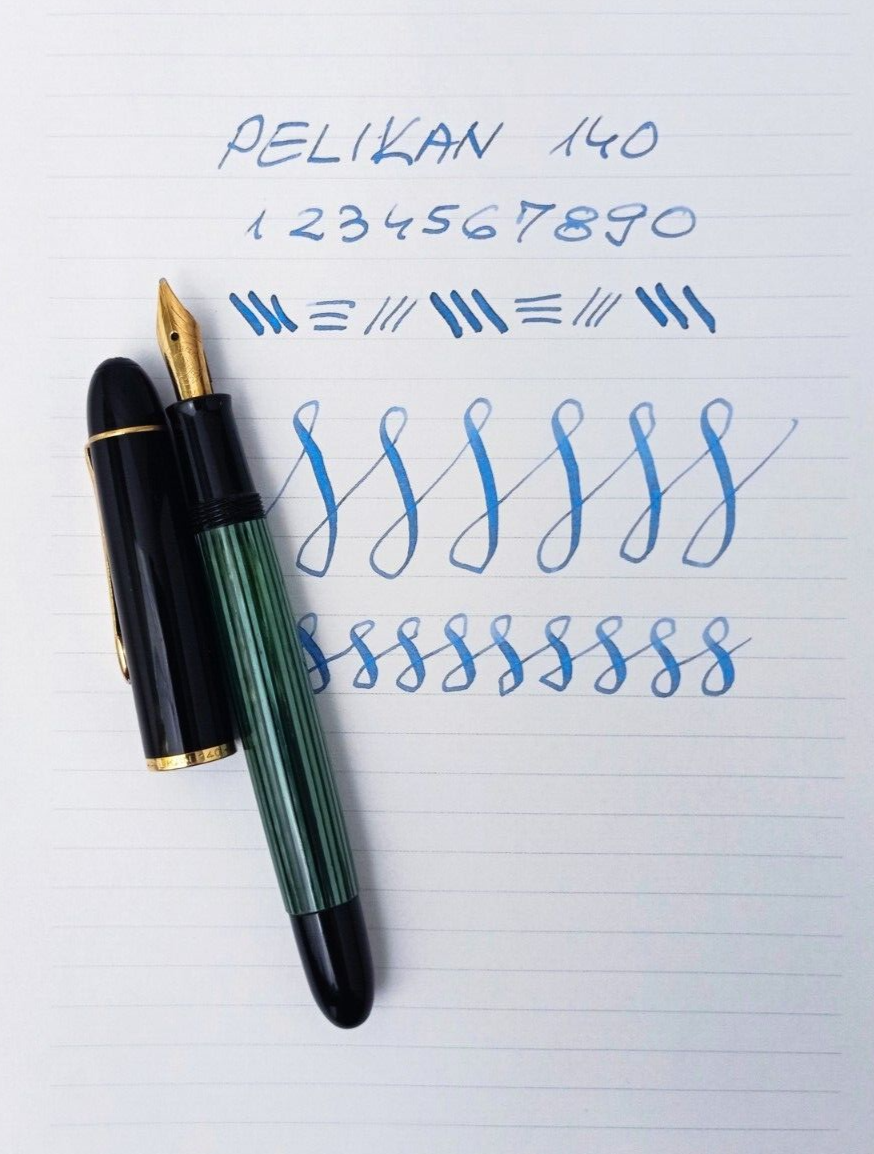 PELIKAN 140
1 2 3 4 5 6 7 8 9 0